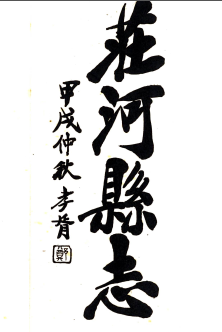 莊河縣志
甲戌仲秋李肯